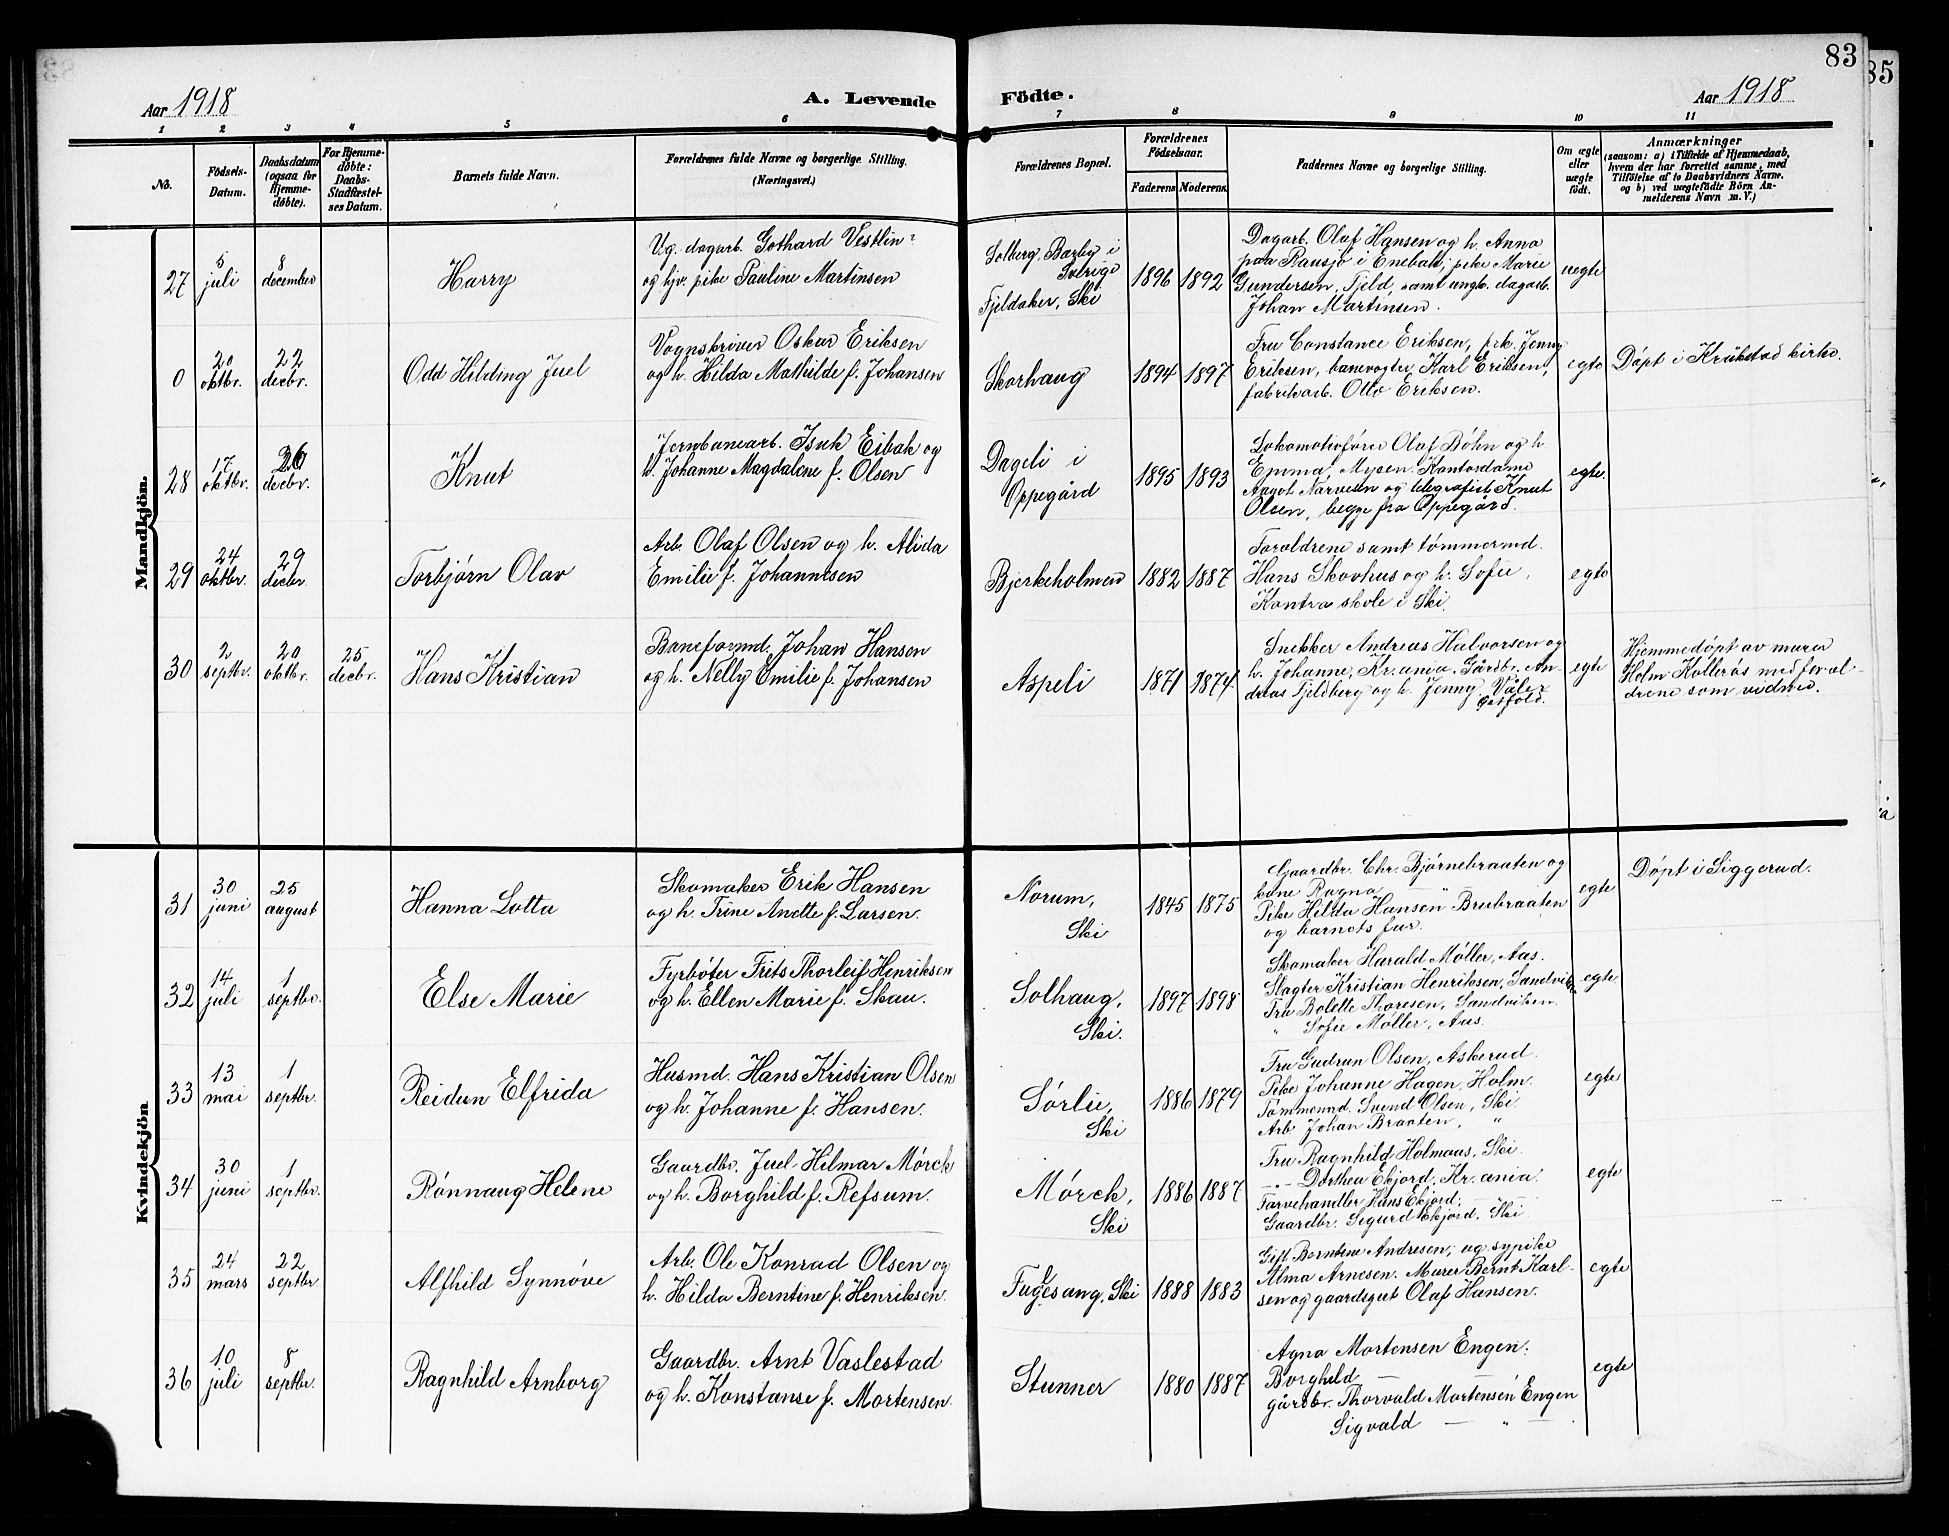 83
85
Aar 1918
A. Levende Födte.
Aar 1918
1 2 3 4 5 6 7 8 9 10 11
No.
Födsels-Datum.
Daabsdatum (ogsaa for Hjemme-döbte).
For Hjemme-döbte: Daabs-Stadfæstel-ses Datum.
Barnets fulde Navn.
Forældrenes fulde Navne og borgerlige Stilling.
(Næringsvei.)
Forældrenes Bopæl.
Forældrenes Födselsaar.
Faderens Moderens
Faddernes Navne og borgerlige Stilling.
Om ægte eller uægte födt.
Anmærkninger
(saasom: a) i Tilfælde af Hjemmedaab,
hvem der har forrettet samme, med
Tilföielse af to Daabsvidners Navne.
og b) ved uægtefödte Börn An-
melderens Navn m. V.)
Mandkjön.
27
5 juli
8 december
Harry
Ug. dagarb. Gothard Vestlin
og hjv. pike Pauline Martinsen
Solberg, Barby i
Sverige
Fjeldaker, Ski
1896 1892
Dagarb. Olaf Hansen og h. Anna
paa Rausjø i Enebak; pike Marie
Gundersen, Fjeld, samt ungk. dagarb.
Johan Martinsen.
uegte
0
20 oktbr.
22 decbr.
Odd Hilding Juel
Vognskriver Oskar Eriksen
og h. Hilda Mathilde f. Johansen
Skorhaug
1894 1897
Fru Constance Eriksen, frk. Jenny
Eriksen, banevogter Karl Eriksen,
fabrikarb. Otto Eriksen.
egte
Döpt i Kråkstad kirke.
28
17 oktbr.
26 decbr.
Knut
Jernbanearb. Isak Eibak og
h. Johanne Magdalene f. Olsen
Dageli i
Oppegård
1895 1893
Lokomotivfører Olaf Bøhn og h.
Emma, Mysen. Kontordame
Aagot Narvesen og telegrafist Knut
Olsen, begge fra Oppegård.
egte.
29
24 oktbr.
29 decbr.
Torbjørn Olav
Arb. Olaf Olsen og h. Alida
Emilie f. Johannesen
Bjerkeholmen
1882 1887
Forældrene samt tømmermd.
Hans Skovhus og h. Sofie,
Kontra skole i Ski.
egte
30
2 septbr.
20 oktbr.
25 decbr.
Hans Kristian
Baneformd. Johan Hansen
og h. Nelly Emilie f. Johansen
Aspeli
1871 1874
Snekker Andreas Halvorsen og
h. Johanne, Kr.ania. Gårdbr. An-
dreas Fjeldberg og h. Jenny, Våler
Østfold.
egte
Hjemmedøpt av murer
Holm Kollerøs med foræl-
drene som vidner.
Kvindekjön
31
30 juni
25 august
Hanna Lotta
Skomaker Erik Hansen
og h. Trine Anette f. Larsen.
Norum,
Ski
1845 1875
Gaardbr. Chr. Bjørnebraaten og
kone Ragna — "
Pike Hilda Hansen Brubraaten
og barnets far.
egte
Döpt i Siggerud.
32
14 juli
1 septbr.
Else Marie
Fyrbøter Frits Thorleif Henriksen
og h. Ellen Marie f. Skau.
Solhaug,
Ski.
1897 1898
Skomaker Harald Møller, Aas.
Slagter Kristian Henriksen, Sandviken
Fru Bolette Thoresen, Sandviken
" Sofie Møller, Aas.
egte
33
13 mai
1 septbr.
Reidun Elfrida
Husmd. Hans Kristian Olsen
og h. Johanne f. Hansen.
Sørlie,
Ski
1886 1879
Fru Gudrun Olsen, Askerud.
Pike Johanne Hagen, Holm.
Tømmermd. Svend Olsen, Ski.
Arb. Johan Braaten, "
egte
34
30 juni
1 septbr.
Rønnaug Helene
Gaardbr. Juel Hilmar Mörck
og h. Borghild f. Refsum.
Mörck,
Ski
1886 1887
Fru Ragnhild Holmaas, Ski.
— Dorthea Ekjord, Kr.ania.
Farvehandler Hans Ekjord, —
Gaardbr. Sigurd Ekjord, Ski.
egte
35
24 mars
22 septbr
Alfhild Synnøve
Arb. Ole Konrad Olsen og
h. Hilda Berntine f. Henriksen.
Fuglesang, Ski
1888 1883
Gift Berntine Andresen, ug. sypike
Alma Arnesen. Murer Bernt Karl-
sen og gaardsgut Olaf Hansen.
egte
36
10 juli
8 septbr.
Ragnhild Arnborg
Gaardbr. Arnt Vaslestad
og h. Konstanse f. Mortensen.
Stunner
1880 1887
Agna Mortensen Engen.
Borghild — —
gårdbr. Thorvald Mortensen Engen
Sigvald — " —
egte